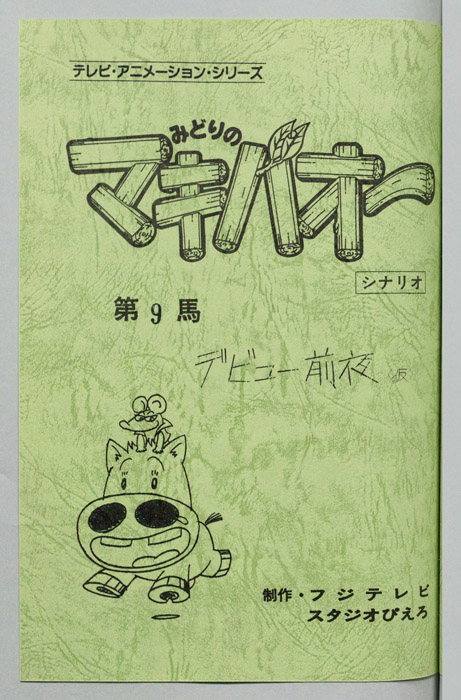 テレビ・アニメーション・シリーズ
みどりの
マキバオー
シナリオ
第9馬
デビュー前夜 (仮)
制作・フジテレビ
スタジオぴえろ